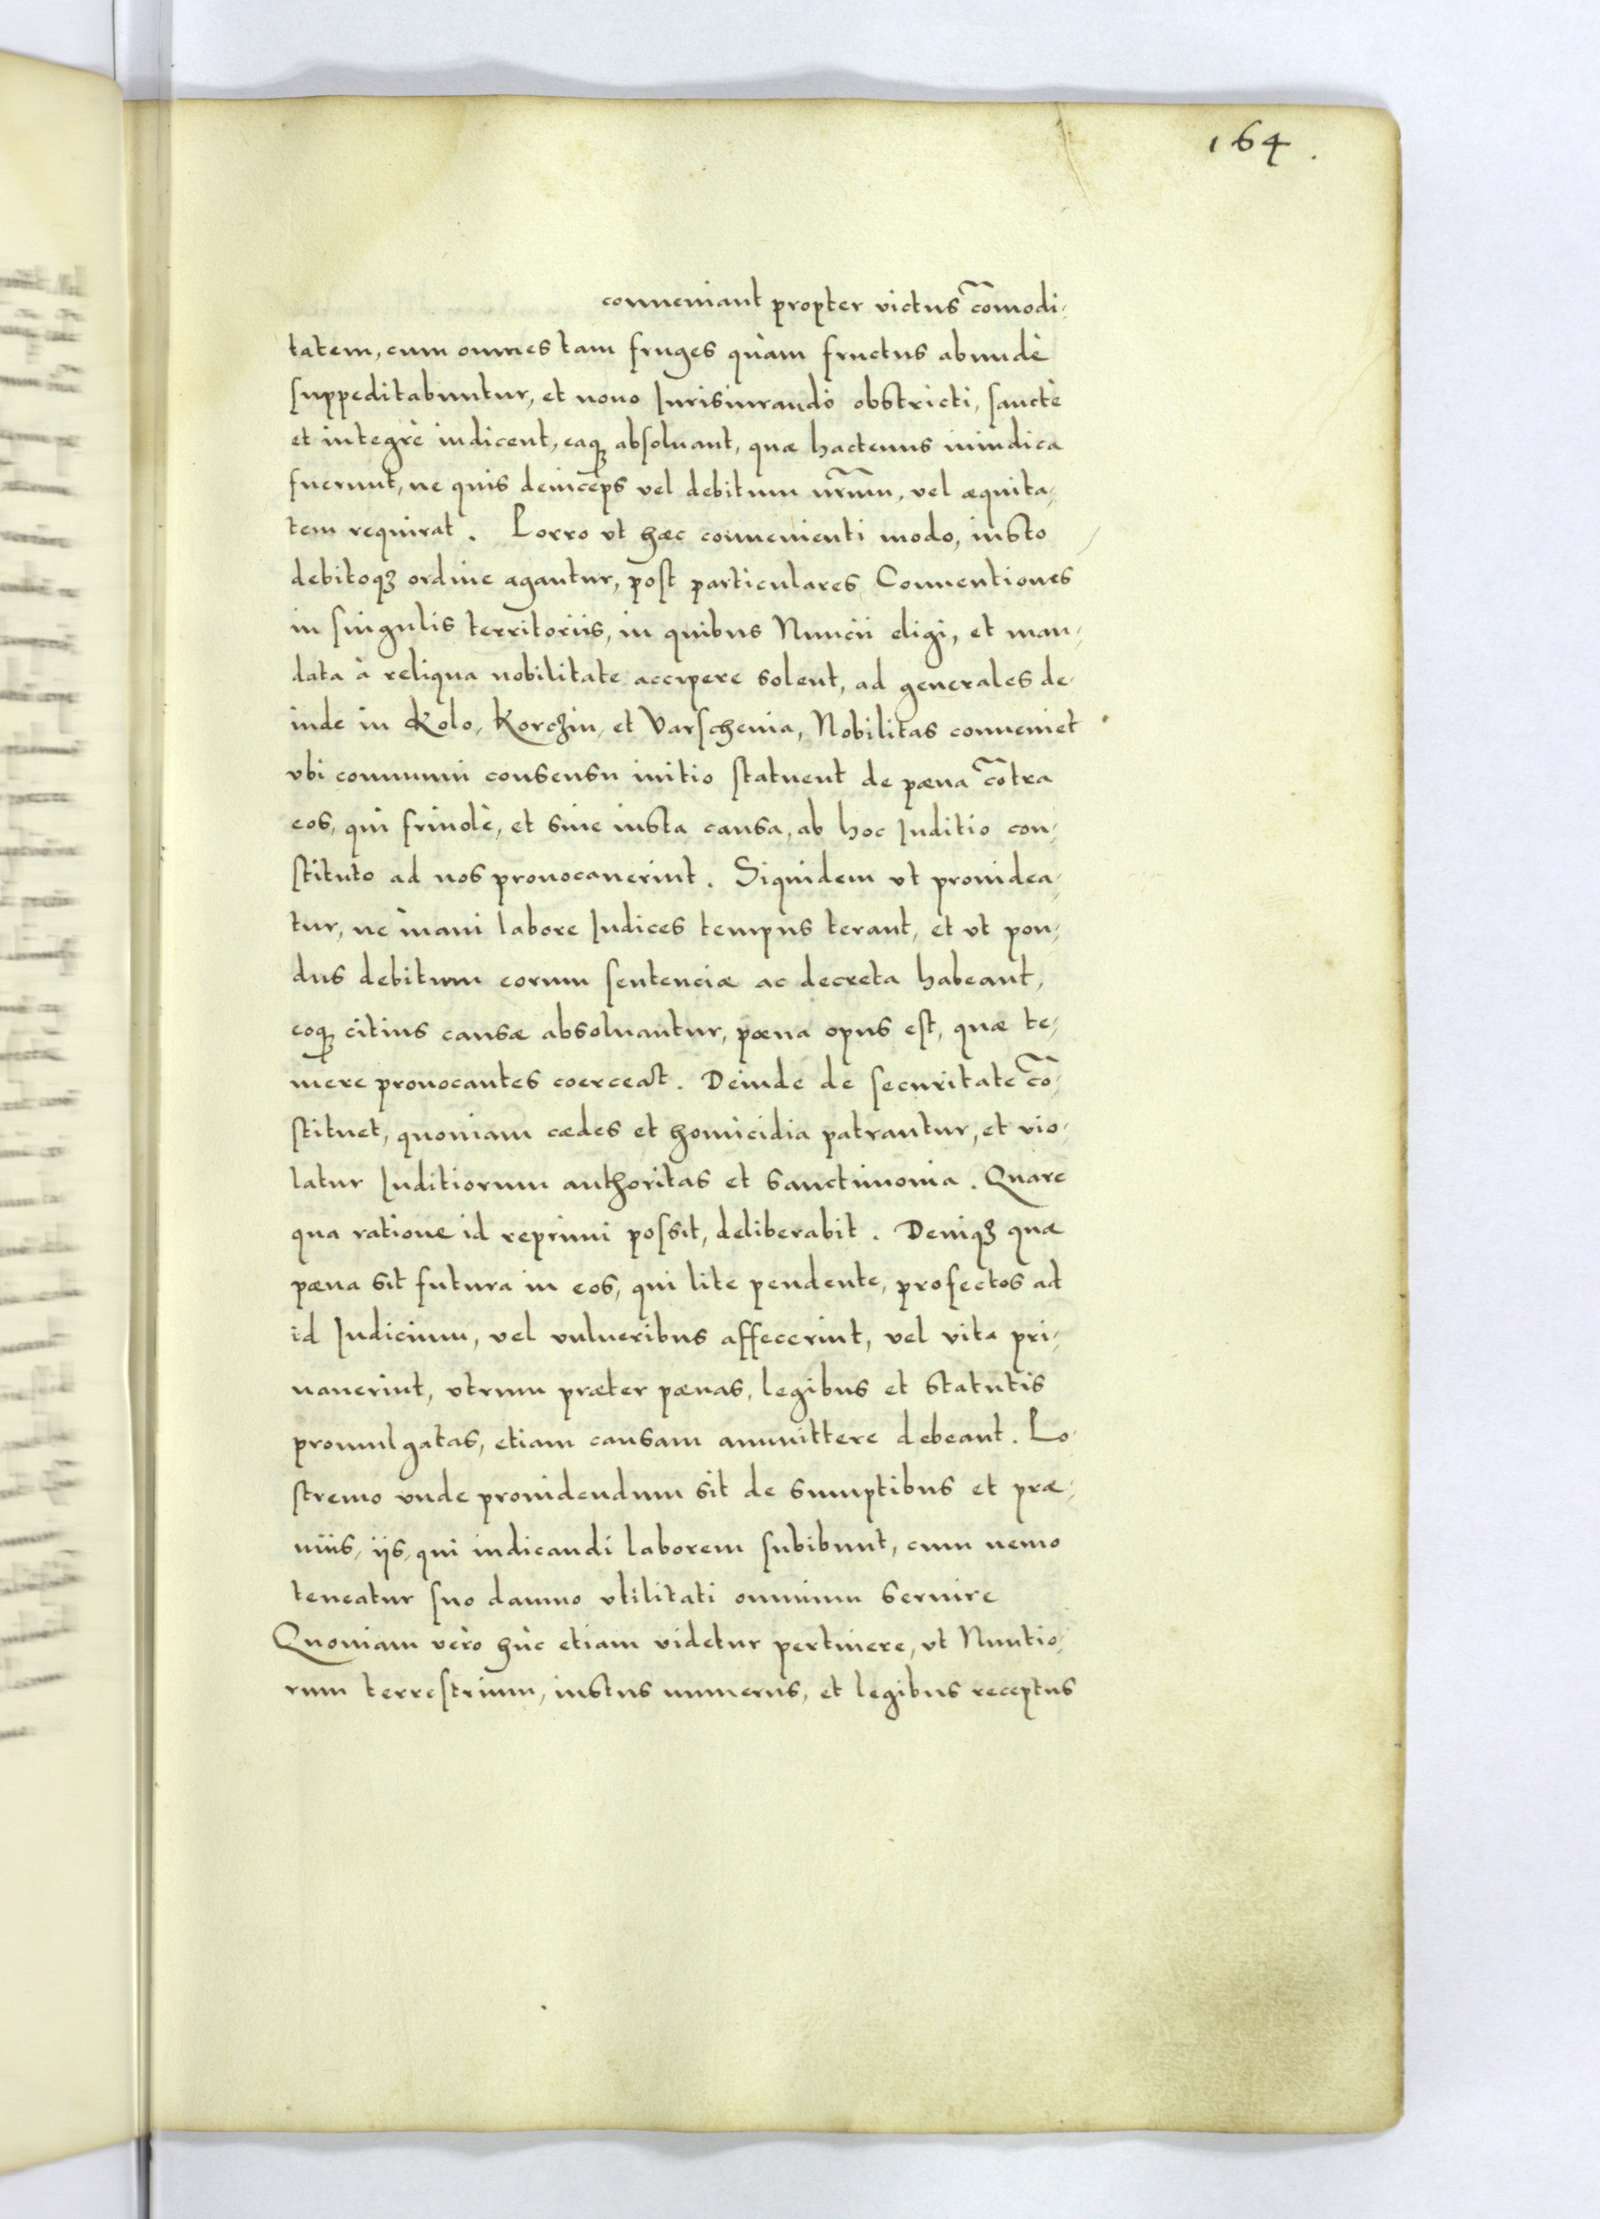 164.
conueniant propter victus com̃odi,
tatem, cum omnes tam fruges quàm fructus abundè
suppeditabuntur, et nouo Iurisiurando obstricti, sanctè
et integrè iudicent, eaqꝫ absoluant, quæ hactenus iniudica
fuerunt, ne quis deinceps vel debitum nr̃um, vel æquita,
tem requirat. Porro vt hæc conuenienti modo, iusto
debitoqꝫ ordine agantur, post particulares Conuentiones
in singulis territoriis, in quibus Nuncii eligi, et man,
data à reliqua nobilitate accipere solent, ad generales de,
inde in Kolo, Korczin, et Varschenia, Nobilitas conueniet
vbi communi consensu initio statuent de pæna cõtra
eos, qui friuolè, et sine iusta causa, ab hoc Iuditio con,
stituto ad nos prouocauerint. Siquidem vt prouidea,
tur, ne inani labore Iudices tempus terant, et vt pon,
dus debitum eorum sentenciæ ac decreta habeant,
eoqꝫ citius causæ absoluantur, pœna opus est, quæ te,
mere prouocantes coerceat. Deinde de securitate cõ,
stituet, quoniam cædes et homicidia patrantur, et vio,
latur Iuditiorum authoritas et sanctimonia. Quare
qua ratione id reprimi possit, deliberabit. Deniqꝫ quæ
pæna sit futura in eos, qui lite pendente, profectos ad
id Iudicium, vel vulneribus affecerint, vel vita pri,
uauerint, vtrum præter pænas, legibus et statutis
promulgatas, etiam causam ammittere debeant. Po,
stremo vnde prouidendum sit de sumptibus et præ,
miis, iis, qui iudicandi laborem subibunt, cum nemo
teneatur suo damno vtilitati omnium seruire
Quoniam verò hùc etiam videtur pertinere, vt Nuntio,
rum terrestrium, iustus numerus, et legibus receptus